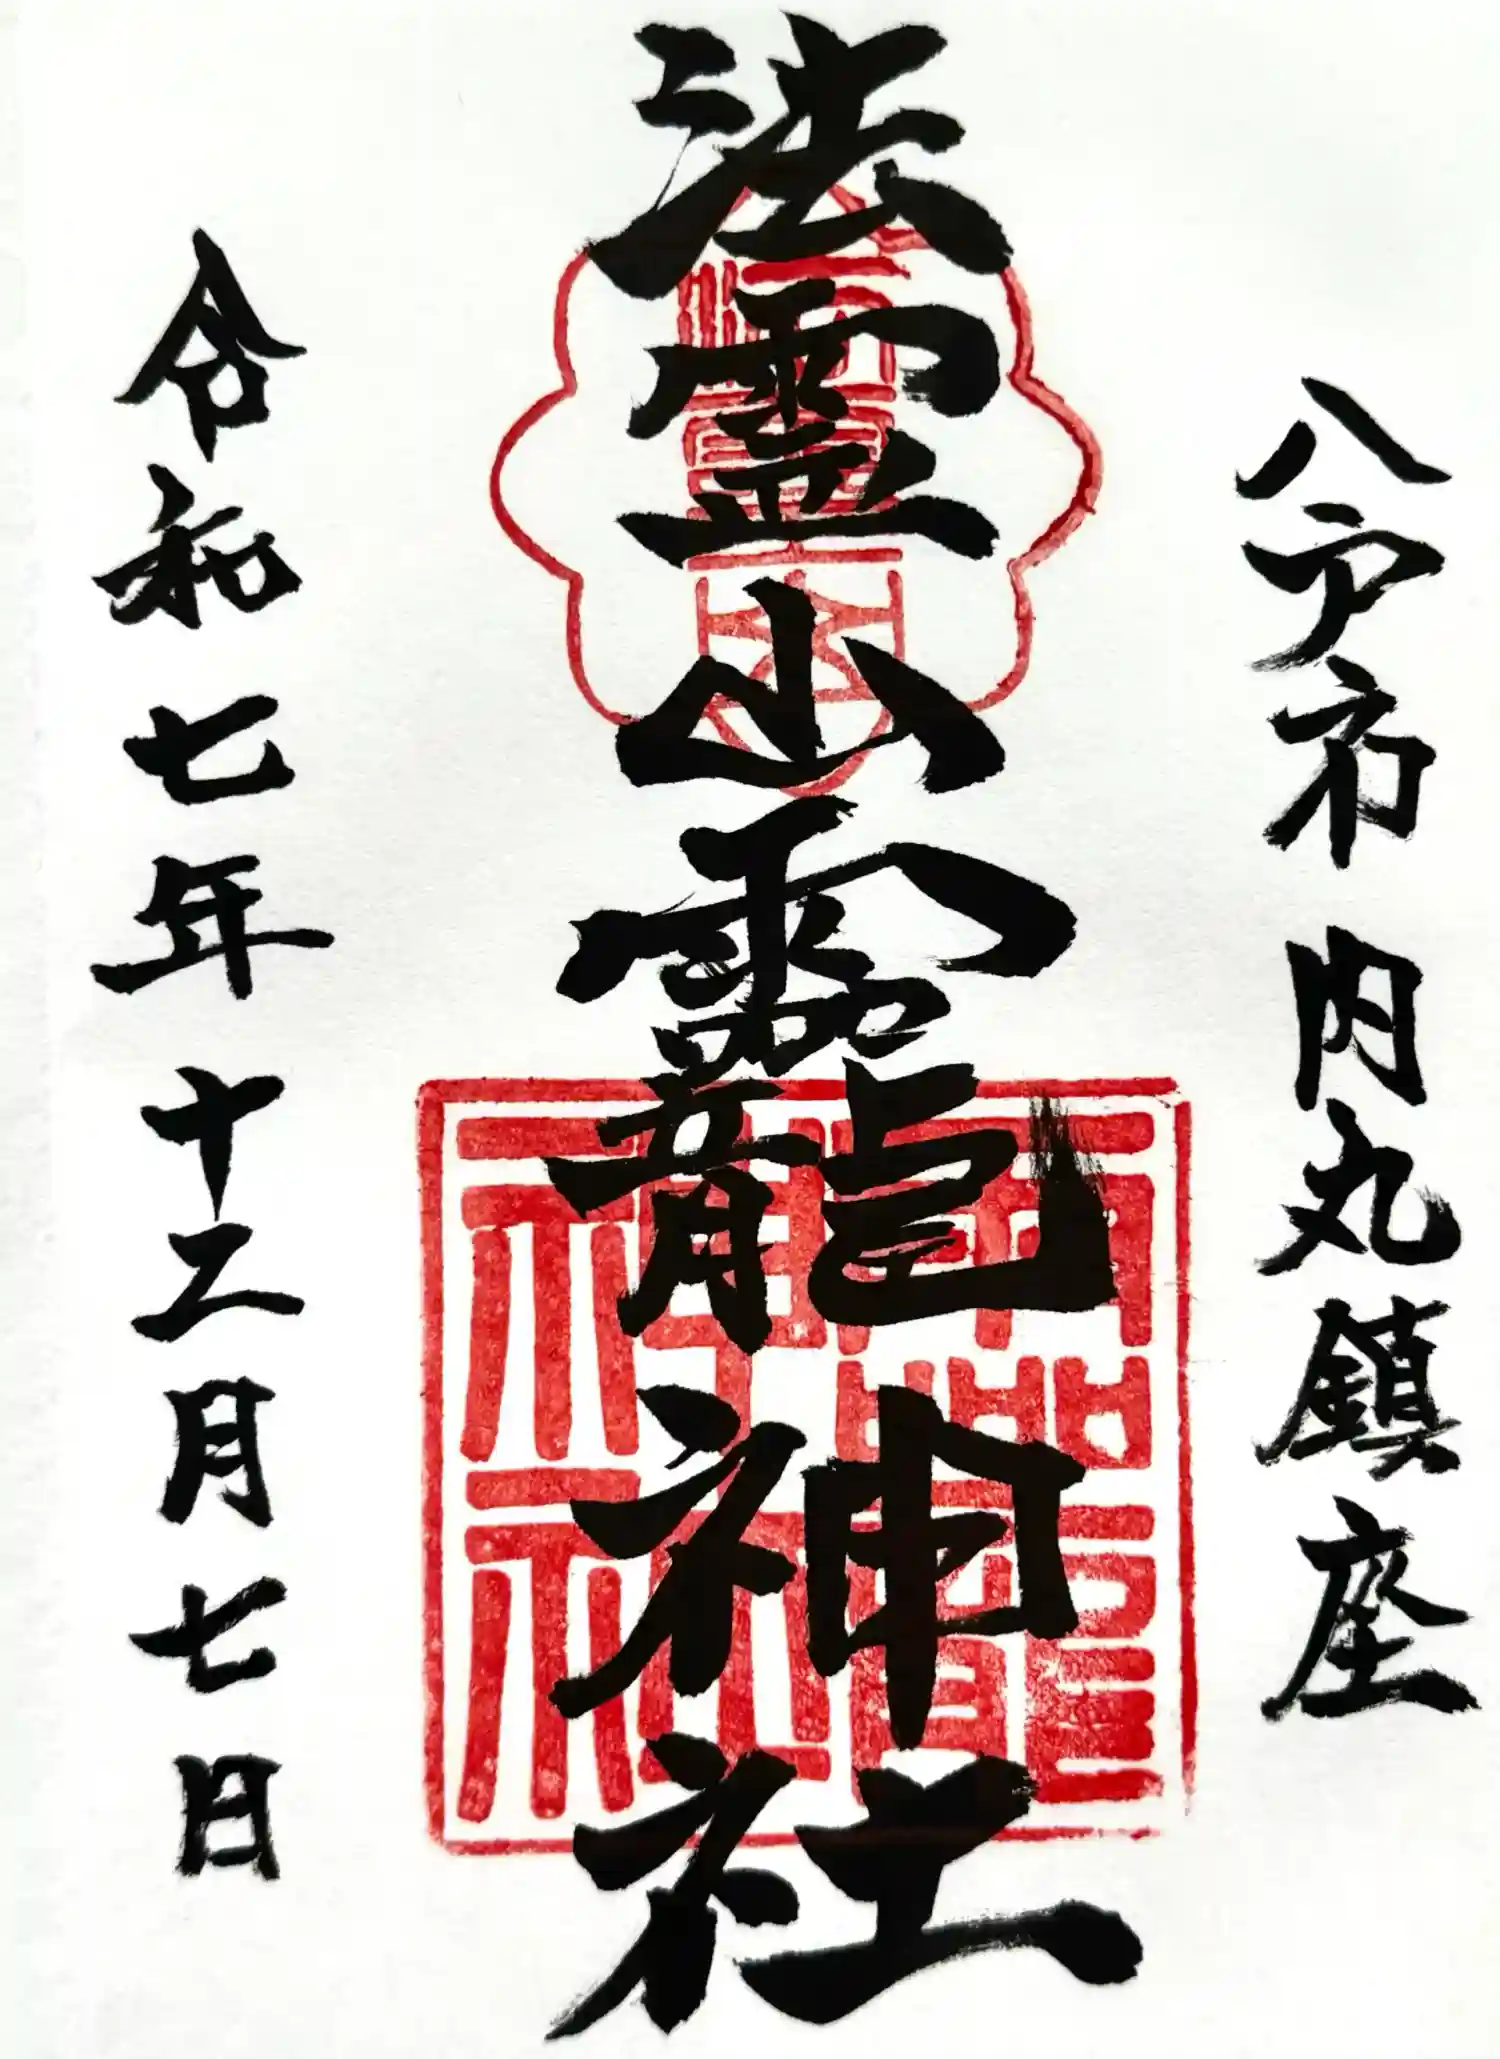 八戸市 内丸鎮座
法霊山龗神社
龗神社
令和七年十二月七日